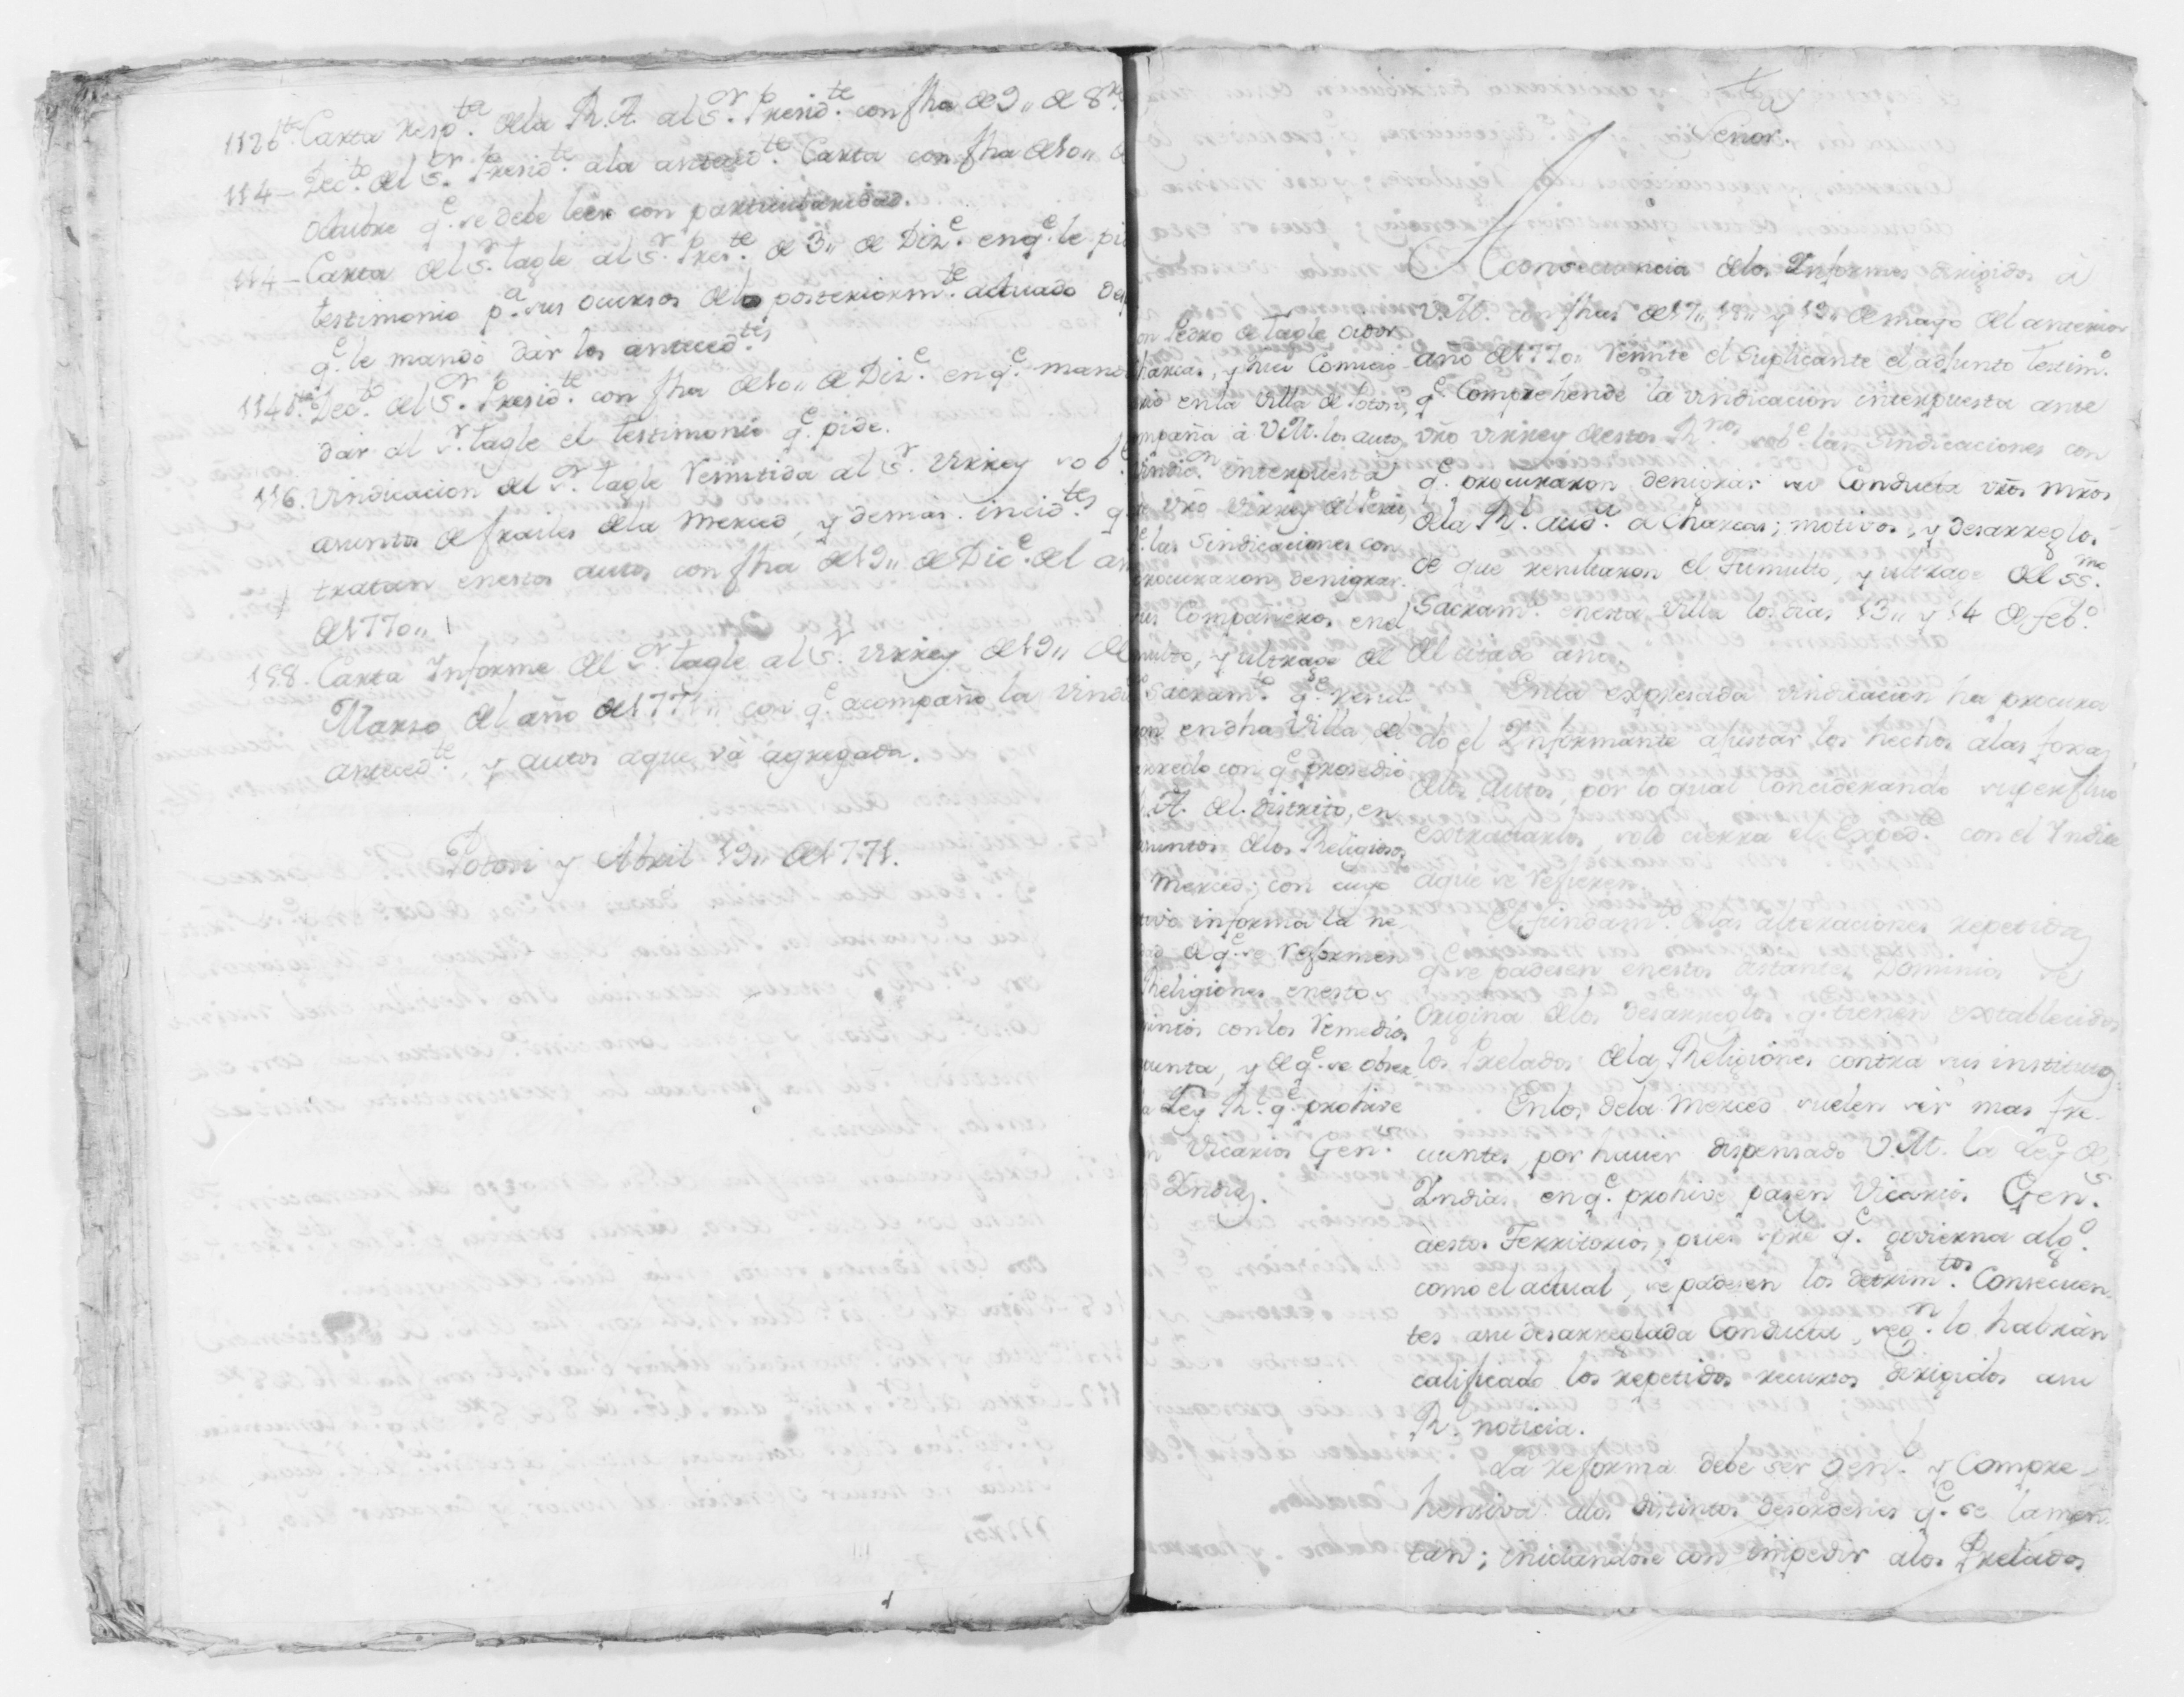 112 bta Carta respta. dela Rl. A. al Sr. Presidte. con fha de 9,, de 8re
114 — Decto. del Sr. Presidte. ala antecedte. Carta con fha de 10,,
Octubre qe. se debe leer con particularidad.
114 — Carta del Sr. Tagle al Sr. Preste. de 3,, de Dize. enqe. le
testimonio pa. sus ocursos delo posteriormte. actuado
qe. le mandó dár los antecedtes
114 bta. Decto. del Sr. Presidte. con fha de 10,, de Dize. enqe.
dár al Sr. Tagle el testimonio qe. pide.
116. Vindicacion del Sr. Tagle Remitida al Sr. Virrey sobe.
asuntos de frailes dela Merced, y demás incidtes
tratan enestos autos con fha de 19,, de Dice. del
de 1770,,
188. Carta Informe del Sr. Tagle al Sr. Virrey de 19,, de
Marso del año de 1771,, con qe. acompaño la
antecedte., y autos aque vá agregada.
Potosi y Abril 19,, de 1771.
Señor.
on Pedro de Tagle oidor
harcas, y Juez Comicio
rio enla Villa de Potosi,
mpaña á V.M. los autos
vindicn. interpuesta
te vro Virrey del Perú,
e. las Sindicaciones con
procuraron denigrar
sus Compañeros, enel
multo, y ultrage del
Sacramto. qe. resul
ron endha Villa del
rreglo con qe. prosedió
l. A. del distrito, en
suntos delos Religiosos
Merced; con cuyo
tivo informa la ne
dad de qe. se reformen
Religiones enestos
minios conlos Remedios
punta, y de qe. se obser
a Ley Rl. qe. prohive
n Vicarios Gens.
Indias.
A consecuencia delos Informes dirigidos á
V.M. con fhas de 17,, 18,, y 19,, demayo del anterior
año de 1770,, Remite el Suplicante el adjunto testimo.
qe. Comprehende la vindicacion interpuesta ante
vro Virrey deestos Rnos. sobe. las sindicaciones con
qe. procuraron denigrar su Conducta vros mros
dela Rl. auda. de Charcas; motivos, y desarreglos
de que resultaron el Tumulto, y ultrage del SSmo.
Sacramto. enesta Villa los dias 13,, y 14 de febo.
del citado año.
Enla expresada vindicacion ha procura
do el Informante ajustar los hechos alas foxas
delos autos, por lo qual Conciderando superfluo
extractarlos, solo cierra el Exped. con el Indice
aque se Refieren.
El fundamto. delas alteraciones repetidas
qe. se padesen enestos Distantes Dominios se
Origina delos desarreglos qe. tienen establecidos
los Prelados delas Religiones contra sus institutos.
Enlos dela Merced suelen sér mas fre-
cuentes, por haver dispensado V.M. la Ley de
Indias, enqe. prohive pasen Vicarios Gens.
aestos Territorios, pues spre qe. govierna algo.
como el actual, se padesen los detrimtos. Consecuen-
tes asu desarreglada Conducta, segn. lo habrán
calificado los repetidos recursos dirigidos asu
Rl. noticia.
La reforma debe ser Genl. y Compre-
hensiva alos distintos desordenes qe. se lamen-
tan; iniciandose con impedir alos Prelados